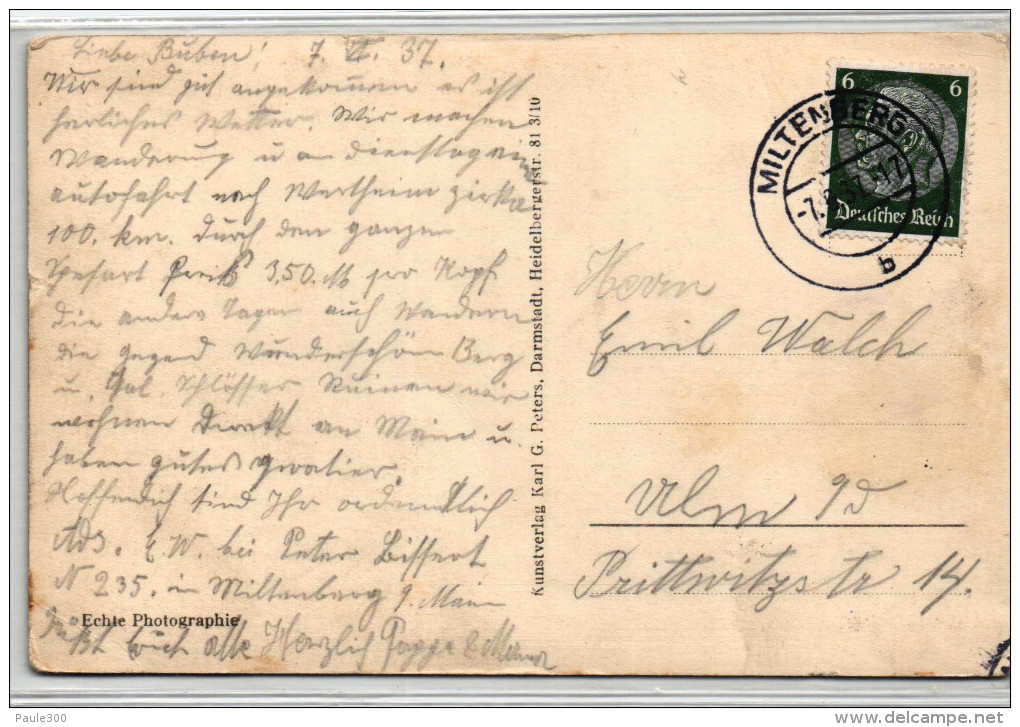 Liebe Buben! 7. VI. 37.
Wir sind gut angekommen es ist
herliches Wetter. Wir machen
Wanderung u an dienstag ein
autofahrt nach Wertheim zirka
100. km. durch den ganzen
Spesart Preiß 3,50 M pro Kopf
die andere Tagen auch Wandern
die gegend Wunderschön Berg
u. Schlösser Ruinen wir
wohnen Direkt am Main u.
haben gutes qwatier.
Hoffendlich sind Ihr ordentlich
Ads. E. W. bei Peter Bissert
N 235. in Miltenberg a. Main
Grüßt Euch alle Herzlich Pappa & Mama
Echte Photographie
Kunstverlag Karl G. Peters, Darmstadt, Heidelbergerstr. 81 3/10
6 6
Deutsches Reich
MILTENBERG
b
Herrn
Emil Walch
Ulm a/D
Prittwitzstr 14.
Paule300
delcampe.net